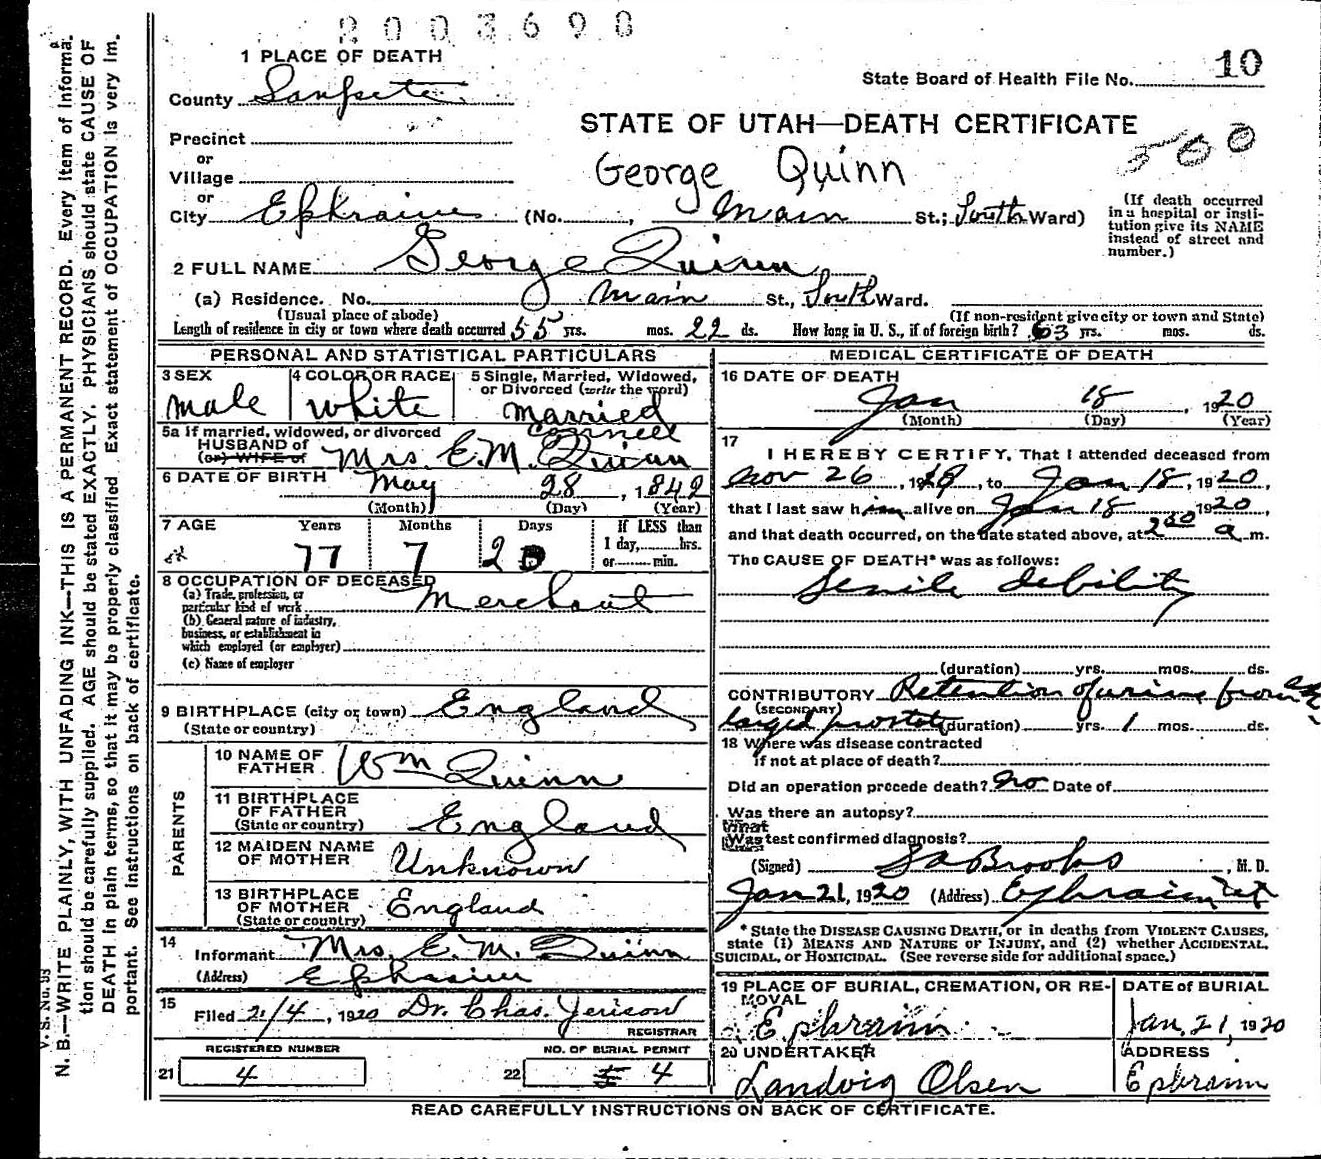 2003690
1 PLACE OF DEATH
State Board of Health File No. 10
County Sanpete
STATE OF UTAH—DEATH CERTIFICATE
Precinct
or
Village
George Quinn
500
or
City Ephraim (No. , Main St.; South Ward)
(If death occurred in a hospital or insti-
tution give its NAME
instead of street and
number.)
2 FULL NAME George Quinn
(a) Residence. No. Main St., South Ward.
(Usual place of abode)
(If non-resident give city or town and State)
Length of residence in city or town where death occurred 55 yrs. mos. 22 ds. How long in U. S., if of foreign birth? 63 yrs. mos. ds.
PERSONAL AND STATISTICAL PARTICULARS
3 SEX
male
4 COLOR OR RACE
white
5 Single, Married, Widowed,
or Divorced (write the word)
married
5a If married, widowed, or divorced
HUSBAND of
(or) WIFE of
Cornell
Mrs. E.M. Quinn
6 DATE OF BIRTH May 28, 1842
(Month) (Day) (Year)
7 AGE Years Months Days If LESS than
1 day, hrs.
or min.
77 7 20
8 OCCUPATION OF DECEASED
(a) Trade, profession, or
particular kind of work Merchant
(b) General nature of industry,
business, or establishment in
which employed (or employer)
(c) Name of employer
9 BIRTHPLACE (city or town) England
(State or country)
PARENTS
10 NAME OF
FATHER Wm Quinn
11 BIRTHPLACE
OF FATHER England
(State or country)
12 MAIDEN NAME
OF MOTHER Unknown
13 BIRTHPLACE
OF MOTHER England
(State or country)
14
Informant Mrs. E. M. Quinn
(Address) Ephraim
15
Filed 2/4, 1920 Dr. Chas.
REGISTRAR
REGISTERED NUMBER
21 4
NO. OF BURIAL PERMIT
22 4
MEDICAL CERTIFICATE OF DEATH
16 DATE OF DEATH
Jan 18, 1920
(Month) (Day) (Year)
17
I HEREBY CERTIFY, That I attended deceased from
Nov 26, 1919, to Jan 18, 1920,
that I last saw him alive on Jan 18 1920,
and that death occurred, on the date stated above, at 2 a m.
The CAUSE OF DEATH* was as follows:
Senile debility
(duration) yrs. mos. ds.
CONTRIBUTORY Retention of urine from en-
(SECONDARY)
larged prostate (duration) yrs. 1 mos. ds.
18 Where was disease contracted
if not at place of death?
Did an operation precede death? no Date of
Was there an autopsy?
What
Was test confirmed diagnosis?
(Signed) Brooks, M. D.
Jan 21, 1920 (Address) Ephraim Ut
* State the DISEASE CAUSING DEATH, or in deaths from VIOLENT CAUSES,
state (1) MEANS AND NATURE OF INJURY, and (2) whether ACCIDENTAL,
SUICIDAL, or HOMICIDAL. (See reverse side for additional space.)
19 PLACE OF BURIAL, CREMATION, OR RE-
MOVAL
Ephraim
DATE of BURIAL
Jan. 21, 1920
20 UNDERTAKER
Landvig Olsen
ADDRESS
Ephraim
READ CAREFULLY INSTRUCTIONS ON BACK OF CERTIFICATE.
V. S. No. 98
N. B.—WRITE PLAINLY, WITH UNFADING INK—THIS IS A PERMANENT RECORD. Every item of informa-
tion should be carefully supplied. AGE should be stated EXACTLY. PHYSICIANS should state CAUSE OF
DEATH in plain terms, so that it may be properly classified. Exact statement of OCCUPATION is very im-
portant. See instructions on back of certificate.